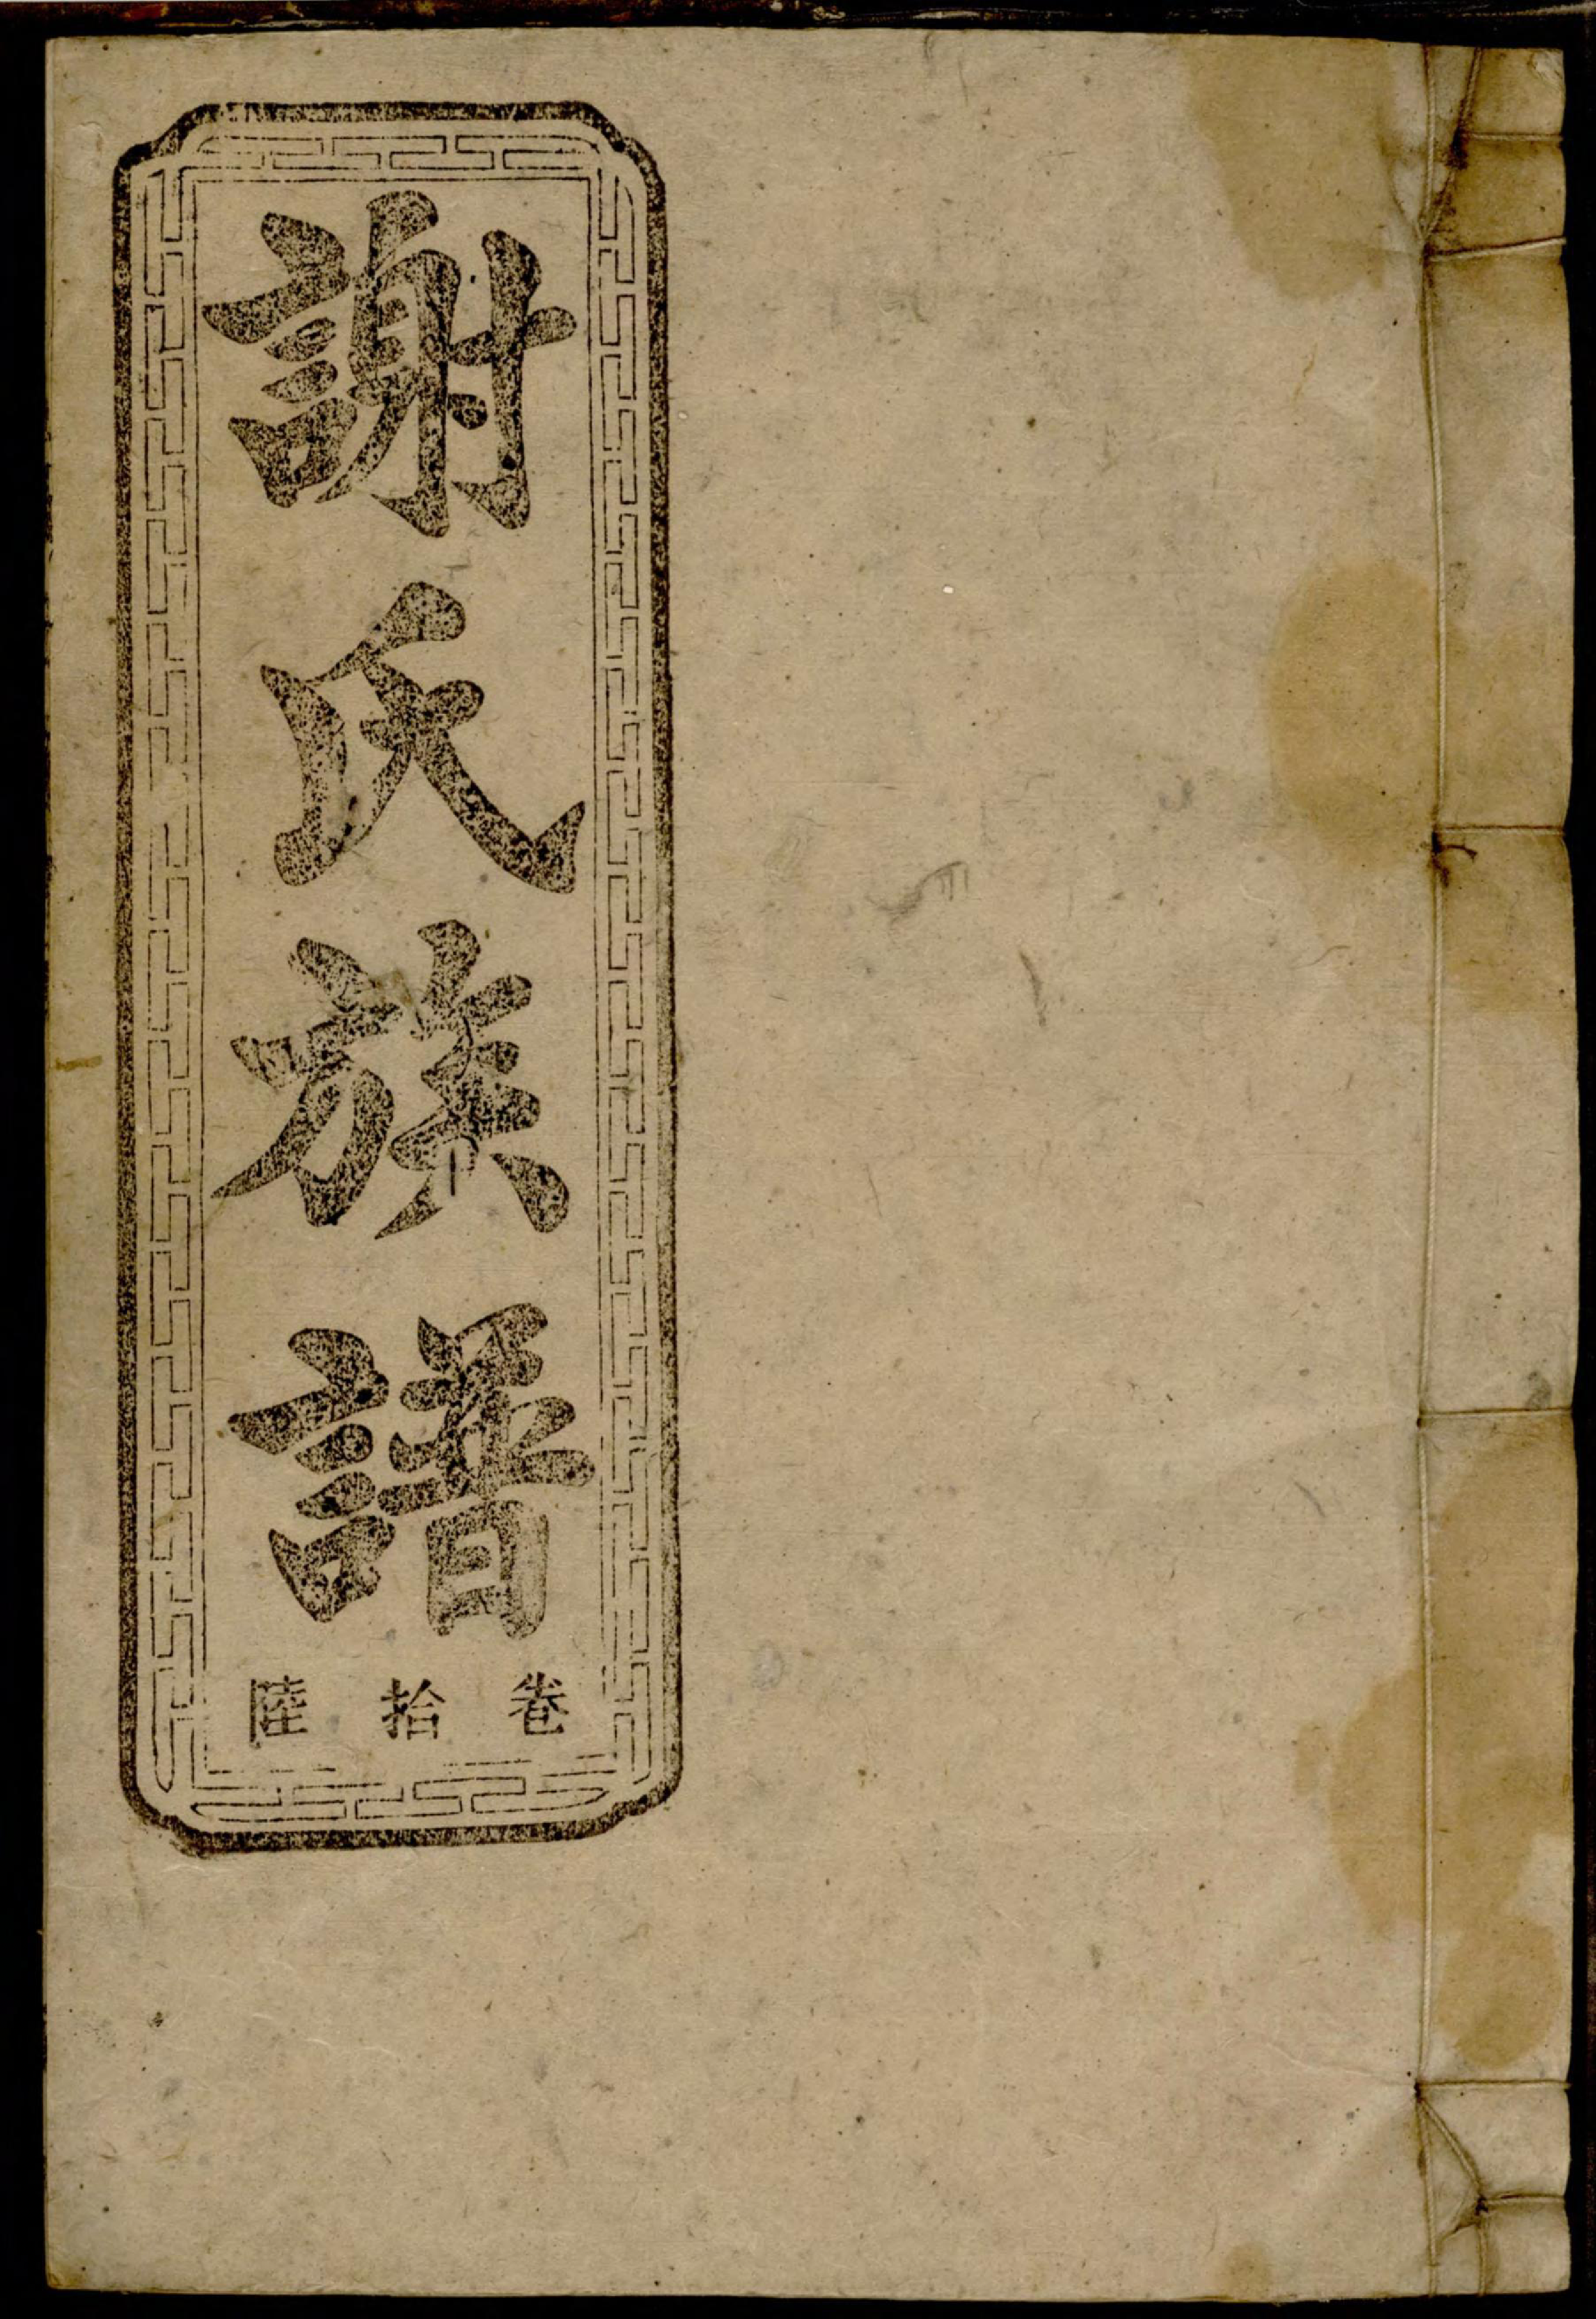 謝氏族譜
卷拾陸